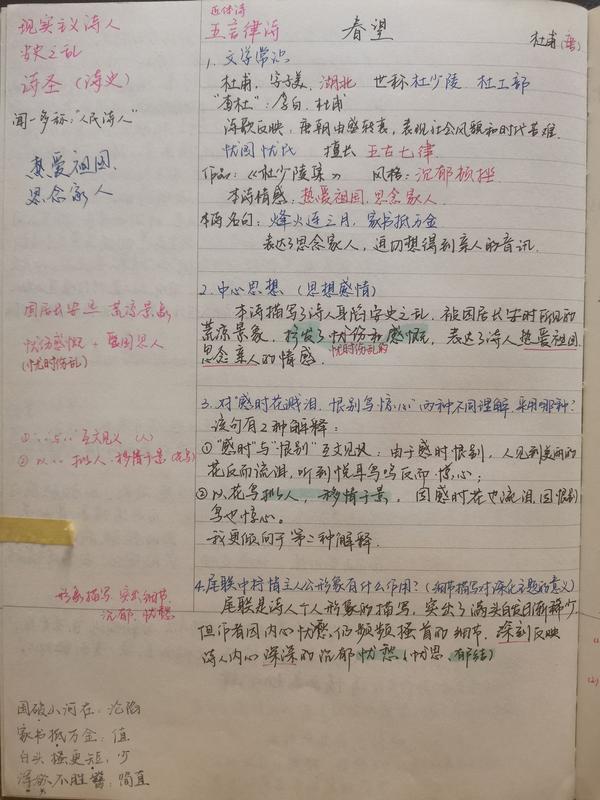 现实主义诗人
安史之乱
诗圣（诗史）
闻一多称："人民诗人"
热爱祖国、
思念家人
困居长安 荒凉景象
忧伤感慨 + 爱国思人
（忧时伤乱）
①"、"与"" 互文见义（人）
②以、、拟人、移情于景（花鸟）
形象描写 突出细节
沉郁 忧愁
国破山河在：沦陷
家书抵万金：值
白头搔更短：少
浑欲不胜簪：简直
近体诗
五言律诗 春望 杜甫（唐）
1. 文学常识
杜甫，字子美，湖北 世称杜少陵 杜工部
"李杜"：李白、杜甫
诗歌反映，唐朝由盛转衰，表现社会风貌和时代苦难.
忧国忧民 擅长 五古七律.
作品：《杜少陵集》 风格：沉郁顿挫
本诗情感：热爱祖国，思念家人.
本诗名句：烽火连三月，家书抵万金
表达了思念家人，迫切想得到亲人的音讯.
2. 中心思想（思想感情）
本诗描写了诗人身陷安史之乱，被困居长安时所见的
荒凉景象，抒发了忧伤和感慨，表达了诗人热爱祖国，
忧时伤乱的
思念亲人的情感.
3. 对"感时花溅泪，恨别鸟惊心"两种不同理解，采用哪种？
该句有2种解释：
①"感时"与"恨别"互文见义：由于感时恨别，人见到美丽的
花反而流泪，听到悦耳鸟鸣反而惊心；
②以花鸟拟人，移情于景，因感时花也流泪，因恨别
鸟也惊心。
我更倾向于第二种解释.
4. 尾联中抒情主人公形象有什么作用？（细节描写对深化主题的意义）
尾联是诗人个人形象的描写，突出了满头白发日渐稀少，
但作者因内心忧愁，仍频频搔首的细节，深刻反映
诗人内心深深的沉郁忧愁（忧思、郁结）